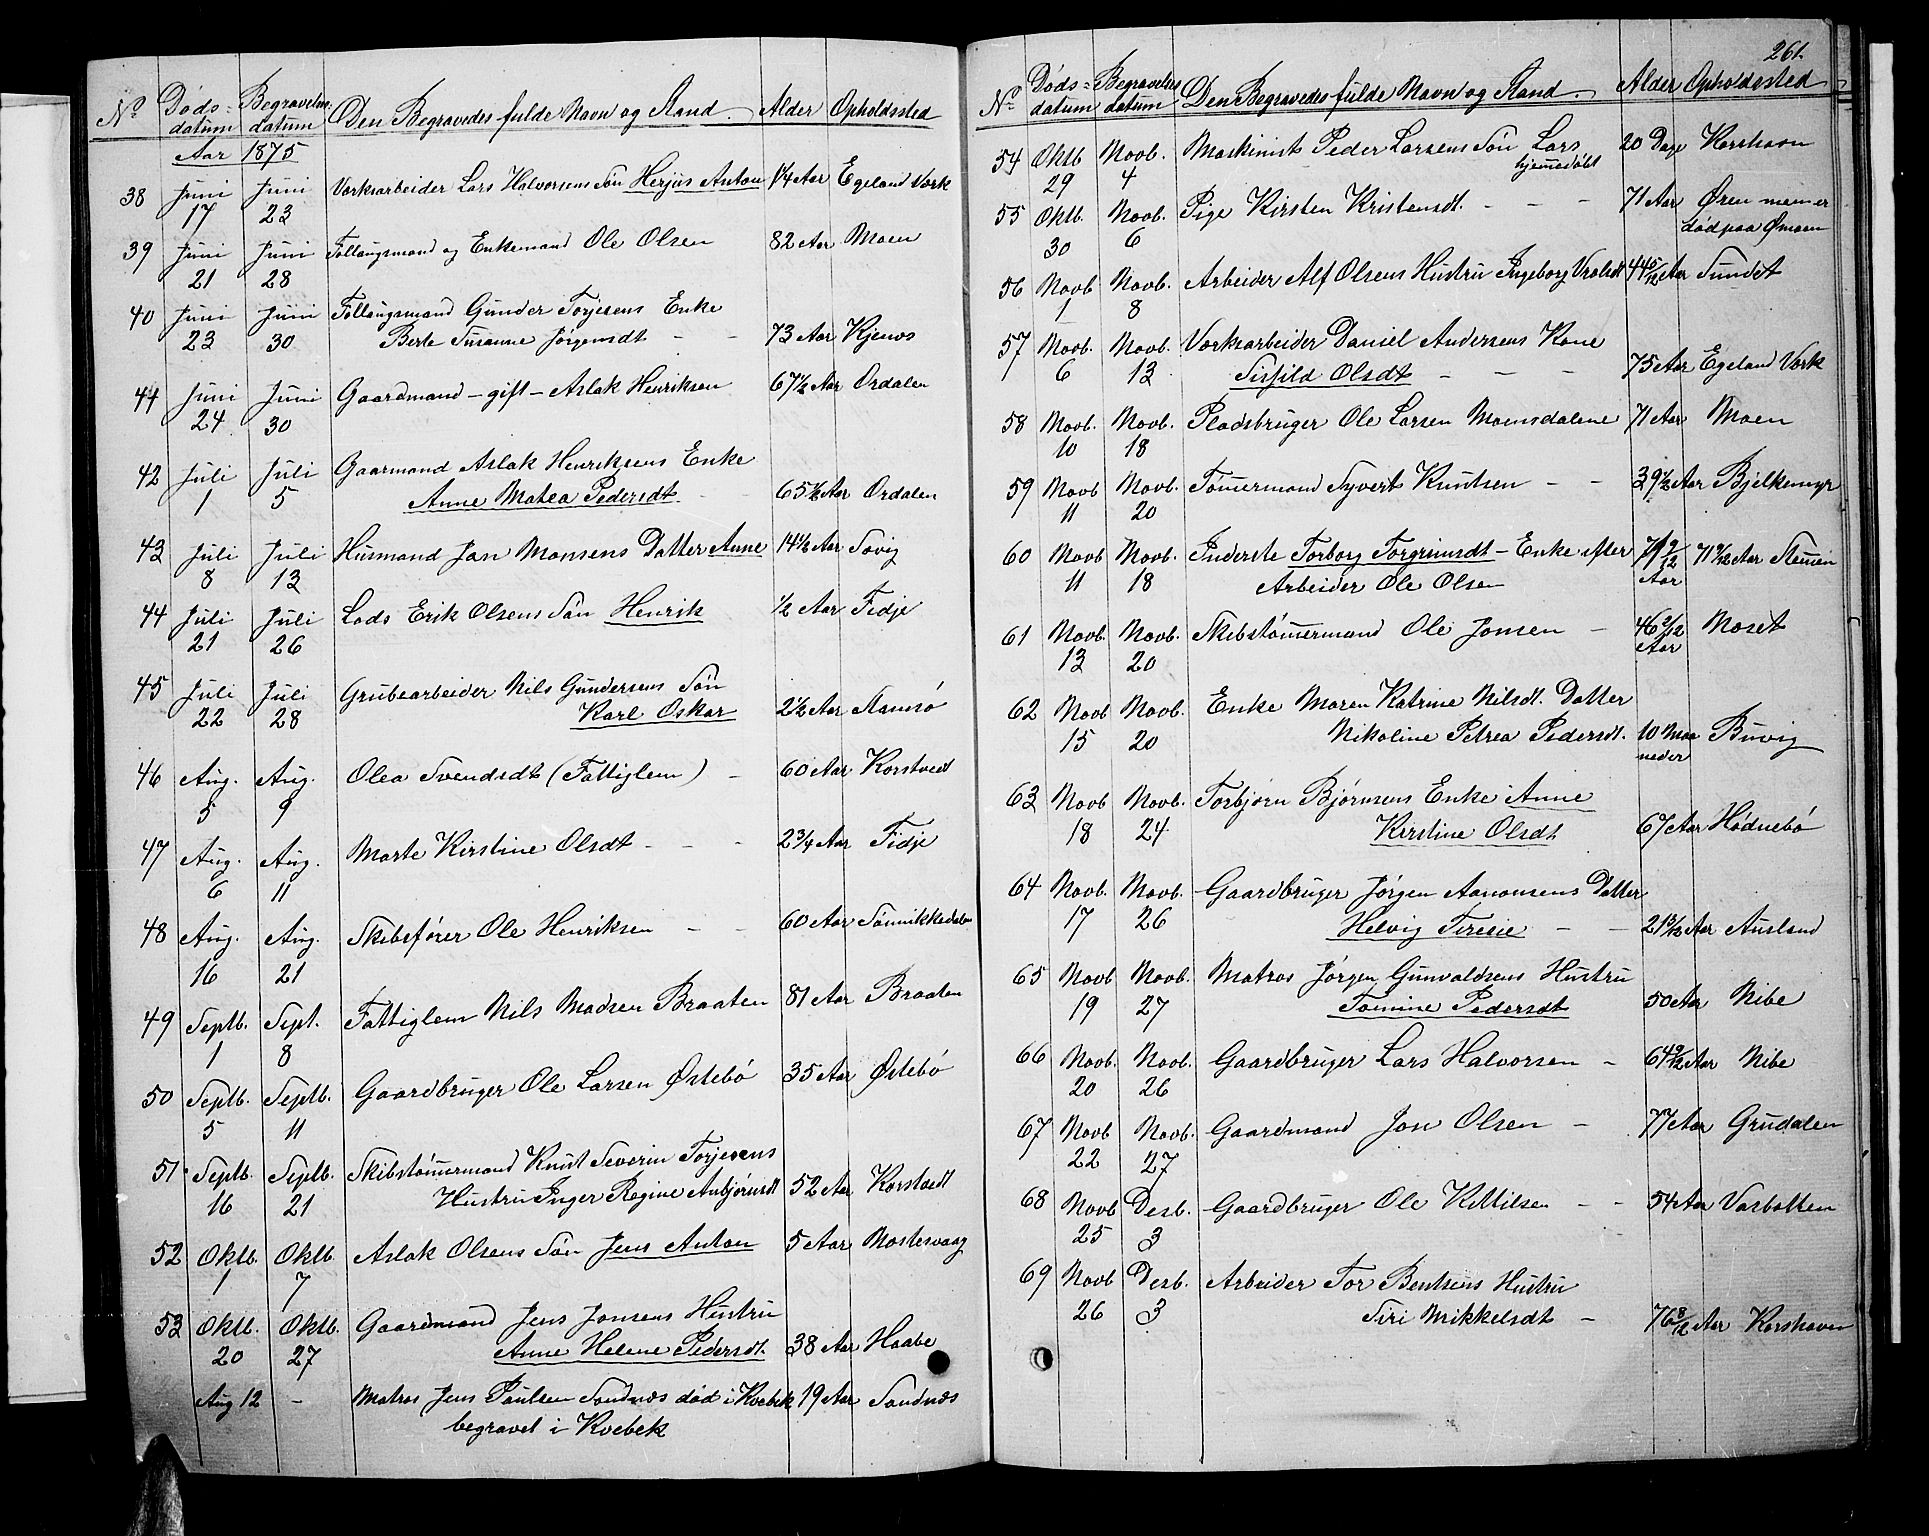 No Døds= datum Begravelses datum Den Begravedes fulde Navn og Stand. Alder Opholdssted
Aar 1875
38 Juni 17 Juni 23 Værksarbeider Lars Halvorsens Søn Herjus Anton 14 Aar Egeland Værk
39 Juni 21 Juni 28 Follaugsmand og Enkemand Ole Olsen 82 Aar Moen
40 Juni 23 Juni 30 Follaugsmand Gunder Torjesens Enke
Berte Susanne Jørgensdt - - 73 Aar Kjenes
41 Juni 24 Juni 30 Gaardmand - gift - Aslak Henriksen 67 1/2 Aar Ørdalen
42 Juli 1 Juli 5 Gaarmand Aslak Henriksens Enke
Anne Matea Pedersdt - 65 1/2 Aar Ørdalen
43 Juli 8 Juli 13 Husmand Jan Monsens Datter Anne 14 1/2 Aar Søvig
44 Juli 21 Juli 26 Lods Erik Olsens Søn Henrik 1/2 Aar Fidje
45 Juli 22 Juli 28 Grubearbeider Nils Gundersens Søn
Karl Oskar 2 1/2 Aar Stamsø
46 Aug. 5 Aug. 9 Olea Svendsdt (Fattiglem) - 60 Aar Korstvedt
47 Aug. 6 Aug. 11 Marte Kirstine Olsdt - - - 2 3/4 Aar Fidje
48 Aug. 16 Aug. 21 Skibsfører Ole Henriksen - - 60 Aar Sønnikkedalen
49 Septb. 1 Sept. 8 Fattiglem Nils Madsen Braaten 81 Aar Braaten
50 Septb. 5 Septb. 11 Gaardbruger Ole Larsen Østebø 35 Aar Østebø
51 Septb. 16 Septb. 21 Skibstømmermand Knut Severin Torjesens
Hustru Inger Regine Anbjørnsdt 52 Aar Korstvedt
52 Oktb. 1 Oktb. 7 Aslak Olsens Søn Jens Anton 5 Aar Mostesvaag
53 Oktb. 20 Oktb. 27 Gaardmand Jens Jonsens Hustru
Anne Helene Pedersdt 38 Aar Haabe
Aug 12 - Matros Jens Paulsen Sandnæs død i Kvebek 19 Aar Sandnæs
begravet i Kvebek
261.
No Døds= datum Begravelses datum Den Begravedes fulde Navn og Stand. Alder Opholdssted
54 Oktb 29 Novb. 4 Maskinist Peder Larsens Søn Lars 20 Dage Korshavn
hjemmedøbt
55 Oktb. 30 Novb. 6 Pige Kirsten Kristensdt. - - - 71 Aar Øren men er
død paa Ømoen
56 Novb 1 Novb. 8 Arbeider Alf Olsens Hustru Ingeborg Vrolsdt 44 5/12 Aar Sundet
57 Novb. 6 Novb. 13 Værksarbeider Daniel Andersens Kone
Sisfild Olsdt - - - 75 Aar Egeland Værk
58 Novb. 10 Novb. 18 Pladsbruger Ole Larsen Moensdalene 71 Aar Moen
59 Novb 11 Novb. 20 Tømmermand Syvert Knutsen - - 39 1/2 Aar Bjelkemyr
60 Novb 11 Novb. 18 Inderste Torborg Torgrimsdt - Enke efter 71 9/12 Aar 71 9/12 Aar Stemen
Arbeider Ole Olsen
61 Novb. 13 Novb. 20 Skibstømmermand Ole Jonsen - 46 2/12 Aar Moset
62 Novb 15 Novb. 20 Enke Maren Katrine Nilsdt. Datter
Nikoline Petrea Pedersdt. 10 Maaneder Buvig
63 Novb 18 Novb. 24 Torbjørn Bjørnsens Enke Anne
Kirstine Olsdt 67 Aar Hødnebø
64 Novb. 17 Novb. 26 Gaardbruger Jørgen Aanonsens Datter
Helvig Tiresie - - Aar Ausland
65 Novb 19 Novb. 27 Matros Jørgen Gunvaldsens Hustru
Tomine Pedersdt 50 Aar Nibe
66 Novb. 20 Novb. 26 Gaardbruger Lars Halvorsen - 64 9/12 Aar Nibe
67 Novb 22 Novb. 27 Gaardmand Jon Olsen - 77 Aar Grudalen
68 Novb 25 Desb. 3 Gaardbruger Ole Kittilsen - - 54 Aar Vasbotten
69 Novb 26 Desb. 3 Arbeider Tor Bentsens Hustru
Siri Mikkelsdt - 76 8/12 Aar Korshaven